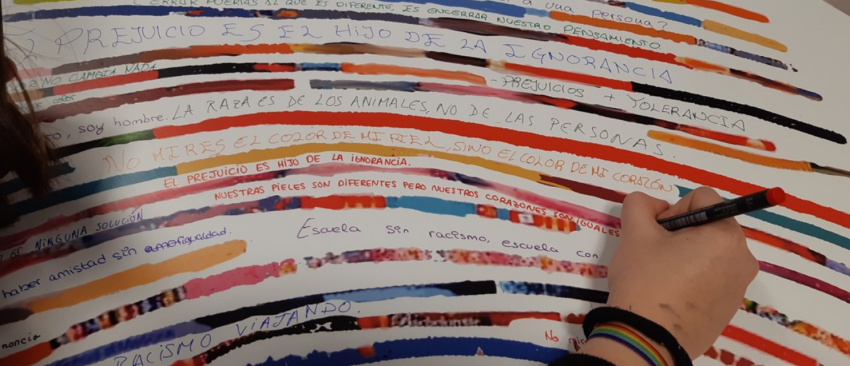 a una persona?
CERRAR PUERTAS AL QUE ES DIFERENTE, ES ENCERRAR NUESTRO PENSAMIENTO
EL PREJUICIO ES EL HIJO DE LA IGNORANCIA
NO CAMBIA NADA
- PREJUICIOS + TOLERANCIA
soy hombre. LA RAZA ES DE LOS ANIMALES, NO DE LAS PERSONAS.
NO MIRES EL COLOR DE MI PIEL, SINO EL COLOR DE MI CORAZÓN
EL PREJUICIO ES HIJO DE LA IGNORANCIA.
NUESTRAS PIELES SON DIFERENTES PERO NUESTROS CORAZONES SON IGUALES
ES NINGUNA SOLUCIÓN
Escuela sin racismo, escuela con
haber amistad sin
RACISMO VIAJANDO.
No